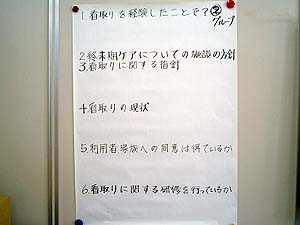 1.看取りを経験したことで?②
グループ
2.終末期ケアについての施設の方針
3.看取りに関する指針
4.看取りの現状
5.利用者家族への同意は得ているか
6.看取りに関する研修を行っているか